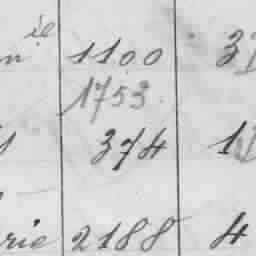 ie
n 1100 3
1753.
374 1
rie 2188 4